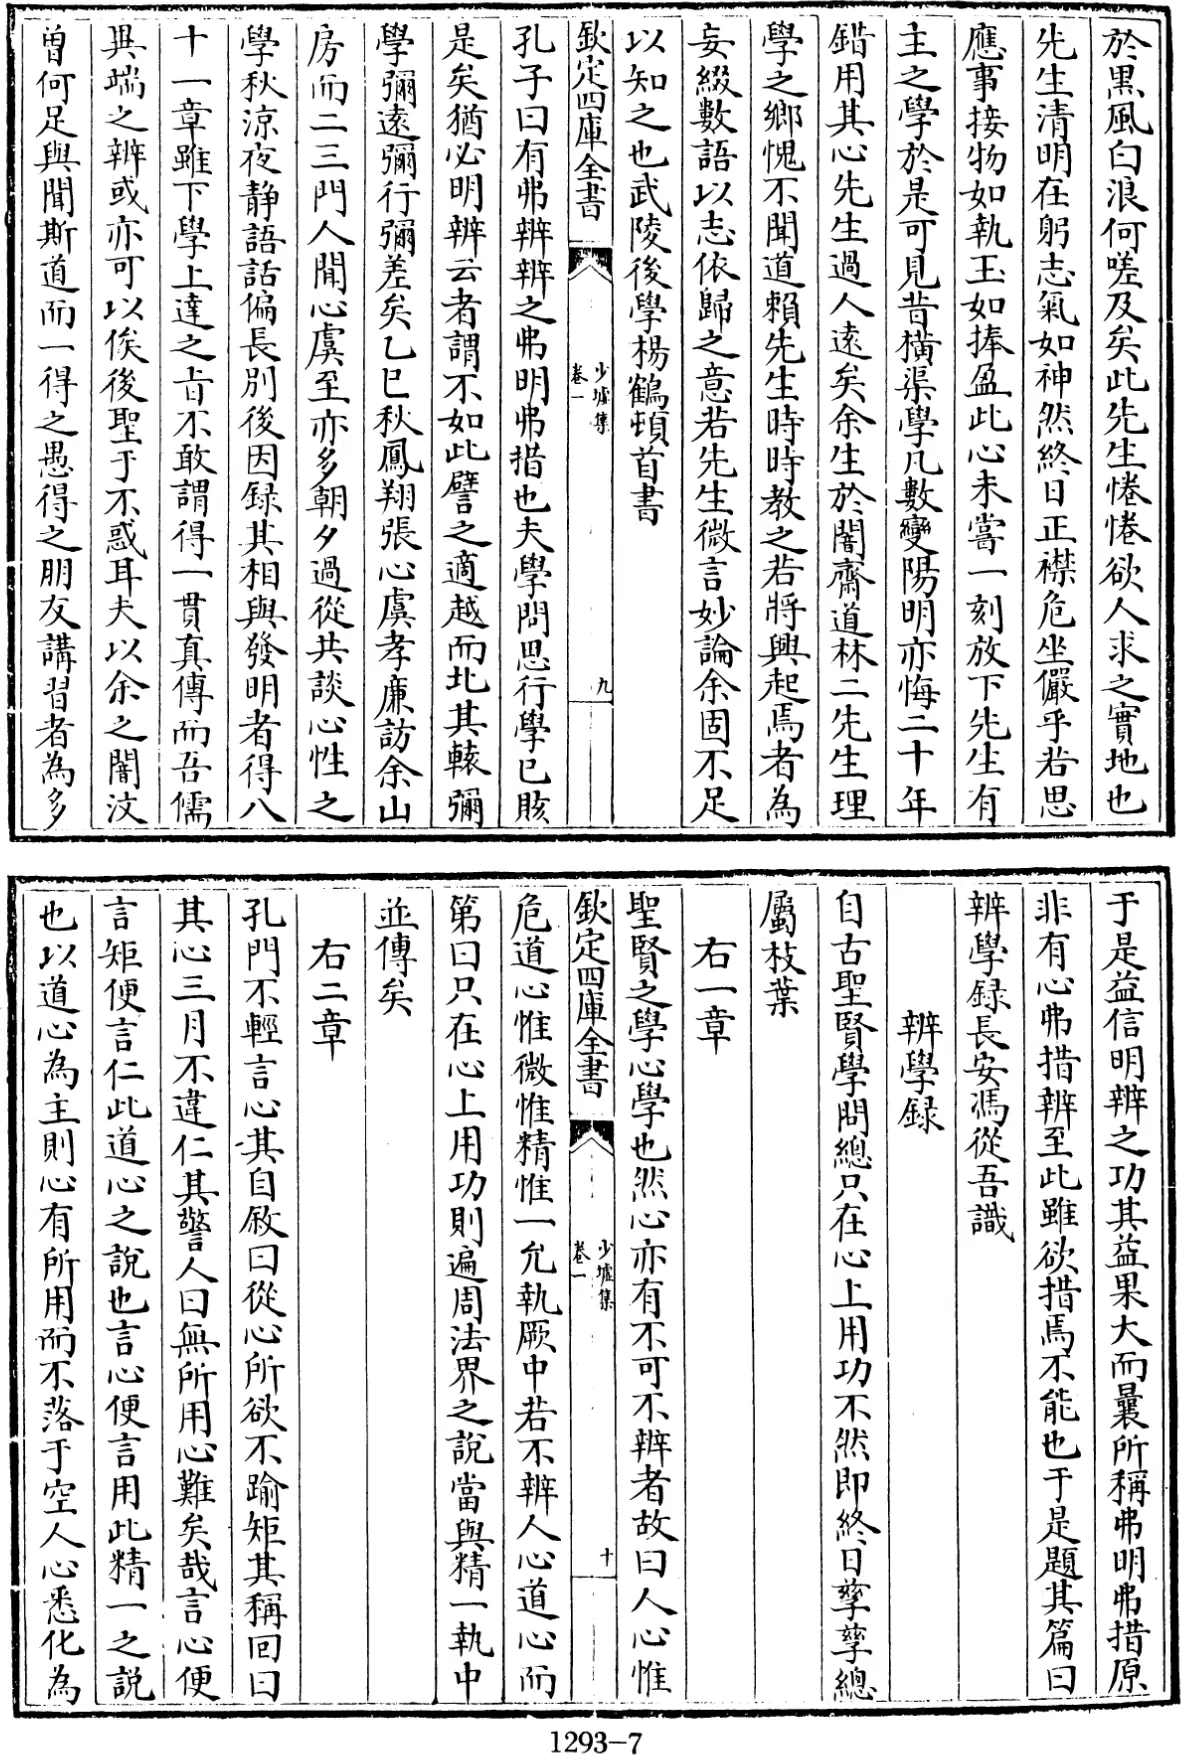 於黒風白浪何嗟及矣此先生惓惓欲人求之實地也
先生清明在躬志氣如神然終日正襟危坐儼乎若思
應事接物如執玉如捧盈此心未嘗一刻放下先生有
主之學於是可見昔横渠學凡數變陽明亦悔二十年
錯用其心先生過人逺矣余生於闇齋道林二先生理
學之鄉愧不聞道賴先生時時教之若將興起焉者為
妄綴數語以志依歸之意若先生微言妙論余固不足
以知之也武陵後學楊鶴頓首書
欽定四庫全書
少墟集
卷一
九
孔子曰有弗辨辨之弗明弗措也夫學問思行學已賅
是矣猶必明辨云者謂不如此譬之適越而北其轅彌
學彌逺彌行彌差矣乙巳秋鳳翔張心虞孝廉訪余山
房而二三門人聞心虞至亦多朝夕過從共談心性之
學秋凉夜静語話偏長别後因録其相與發明者得八
十一章雖下學上達之㫖不敢謂得一貫真傳而吾儒
異端之辨或亦可以俟後聖于不惑耳夫以余之闇汶
曽何足與聞斯道而一得之愚得之朋友講習者為多
于是益信明辨之功其益果大而曩所稱弗明弗措原
非有心弗措辨至此雖欲措焉不能也于是題其篇曰
辨學録長安馮從吾識
辨學録
自古聖賢學問總只在心上用功不然即終日孳孳總
屬枝葉
右一章
聖賢之學心學也然心亦有不可不辨者故曰人心惟
欽定四庫全書
少墟集
卷一
十
危道心惟微惟精惟一允執厥中若不辨人心道心而
第曰只在心上用功則遍周法界之説當與精一執中
並傳矣
右二章
孔門不輕言心其自敘曰從心所欲不踰矩其稱回曰
其心三月不違仁其警人曰無所用心難矣哉言心便
言矩便言仁此道心之説也言心便言用此精一之説
也以道心為主則心有所用而不落于空人心悉化為
1293-7